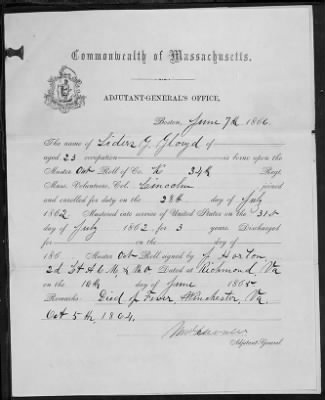 Commonwealth of Massachusetts.
ADJUTANT-GENERAL'S OFFICE,
Boston, June 7th 1866
The name of Sidera G. Gloyd
aged 23 occupation is borne upon the
Muster Out Roll of Co. K 34th Regt.
Mass. Volunteers, Col. Lincoln joined
and enrolled for duty on the 28th day of July
1862 Mustered into service of United States on the 31st
day of July 1862 for 3 years. Discharged
for on the day of
186 Muster Out Roll signed by J Horton
2d Lt A C M, & No Dated at Richmond, Va
on the 16th day of June 1865
Remarks: Died of Fever, Winchester, Va.
Oct 5th, 1864.
Adjutant-General.